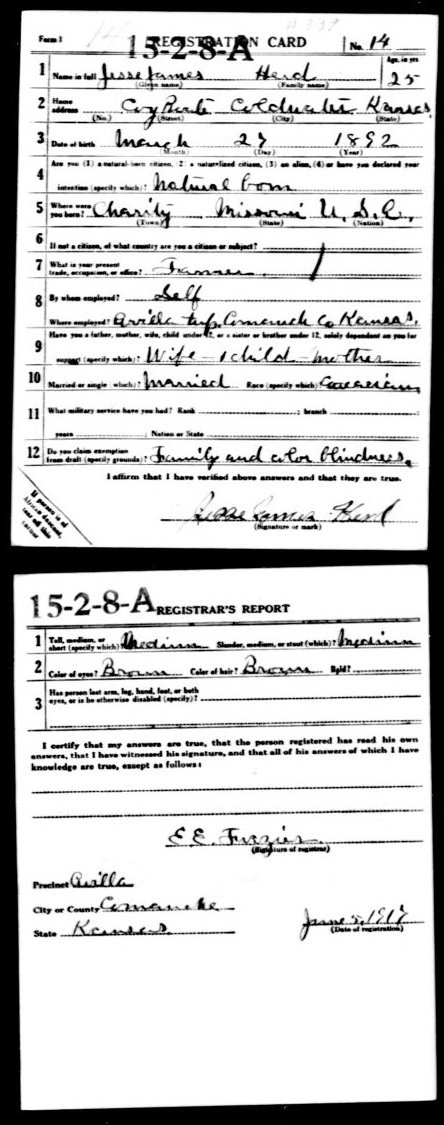 Form 1
15-2-8-A
REGISTRATION CARD
No. 14
1 Name in full Jesse James Herd Age, in yrs. 25
(Given name) (Family name)
2 Home address Coy Route Coldwater Kansas
(No.) (Street) (City) (State)
3 Date of birth March 27 1892
(Month) (Day) (Year)
4 Are you (1) a natural-born citizen, (2) a naturalized citizen, (3) an alien, (4) or have you declared your
intention (specify which)? Natural born
5 Where were you born? Charity Missouri U. S. A.
(Town) (State) (Nation)
6 If not a citizen, of what country are you a citizen or subject?
7 What is your present trade, occupation, or office? Farmer
8 By whom employed? Self
Where employed? Avilla twp. Comanche Co Kansas.
9 Have you a father, mother, wife, child under 12, or a sister or brother under 12, solely dependent on you for
support (specify which)? Wife - 1 child - mother
10 Married or single (which)? Married Race (specify which)? Caucasian
11 What military service have you had? Rank ; branch ;
years ; Nation or State
12 Do you claim exemption from draft (specify grounds)? Family and color blindness.
I affirm that I have verified above answers and that they are true.
Jesse James Herd
(Signature or mark)
If person is of
African descent,
corner
15-2-8-A REGISTRAR'S REPORT
1 Tall, medium, or short (specify which)? Medium Slender, medium, or stout (which)? Medium
2 Color of eyes? Brown Color of hair? Brown Bald?
3 Has person lost arm, leg, hand, foot, or both
eyes, or is he otherwise disabled (specify)?
I certify that my answers are true, that the person registered has read his own
answers, that I have witnessed his signature, and that all of his answers of which I have
knowledge are true, except as follows:
E. E. Frazier
(Signature of registrar)
Precinct Avilla
City or County Comanche
State Kansas
June 5, 1917
(Date of registration)